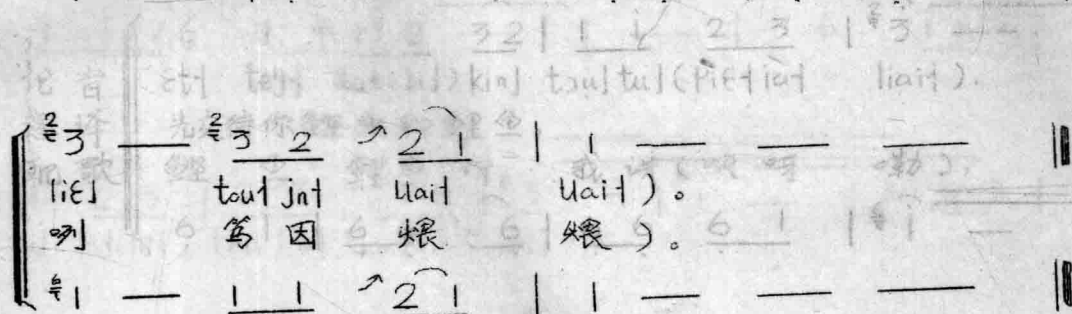 ²3 — ²3 2 ↗2 1 | 1 — — — ‖
liɛ˩ tou˧ jn˧ uai˧ uai˧)。
咧 笃 因 煨 煨 )。
⁶1 — 1 1 ↗2 1 | 1 — — — ‖